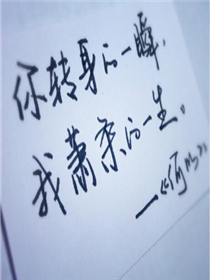 你转身的一瞬,
我萧索的一生。
——《何以》